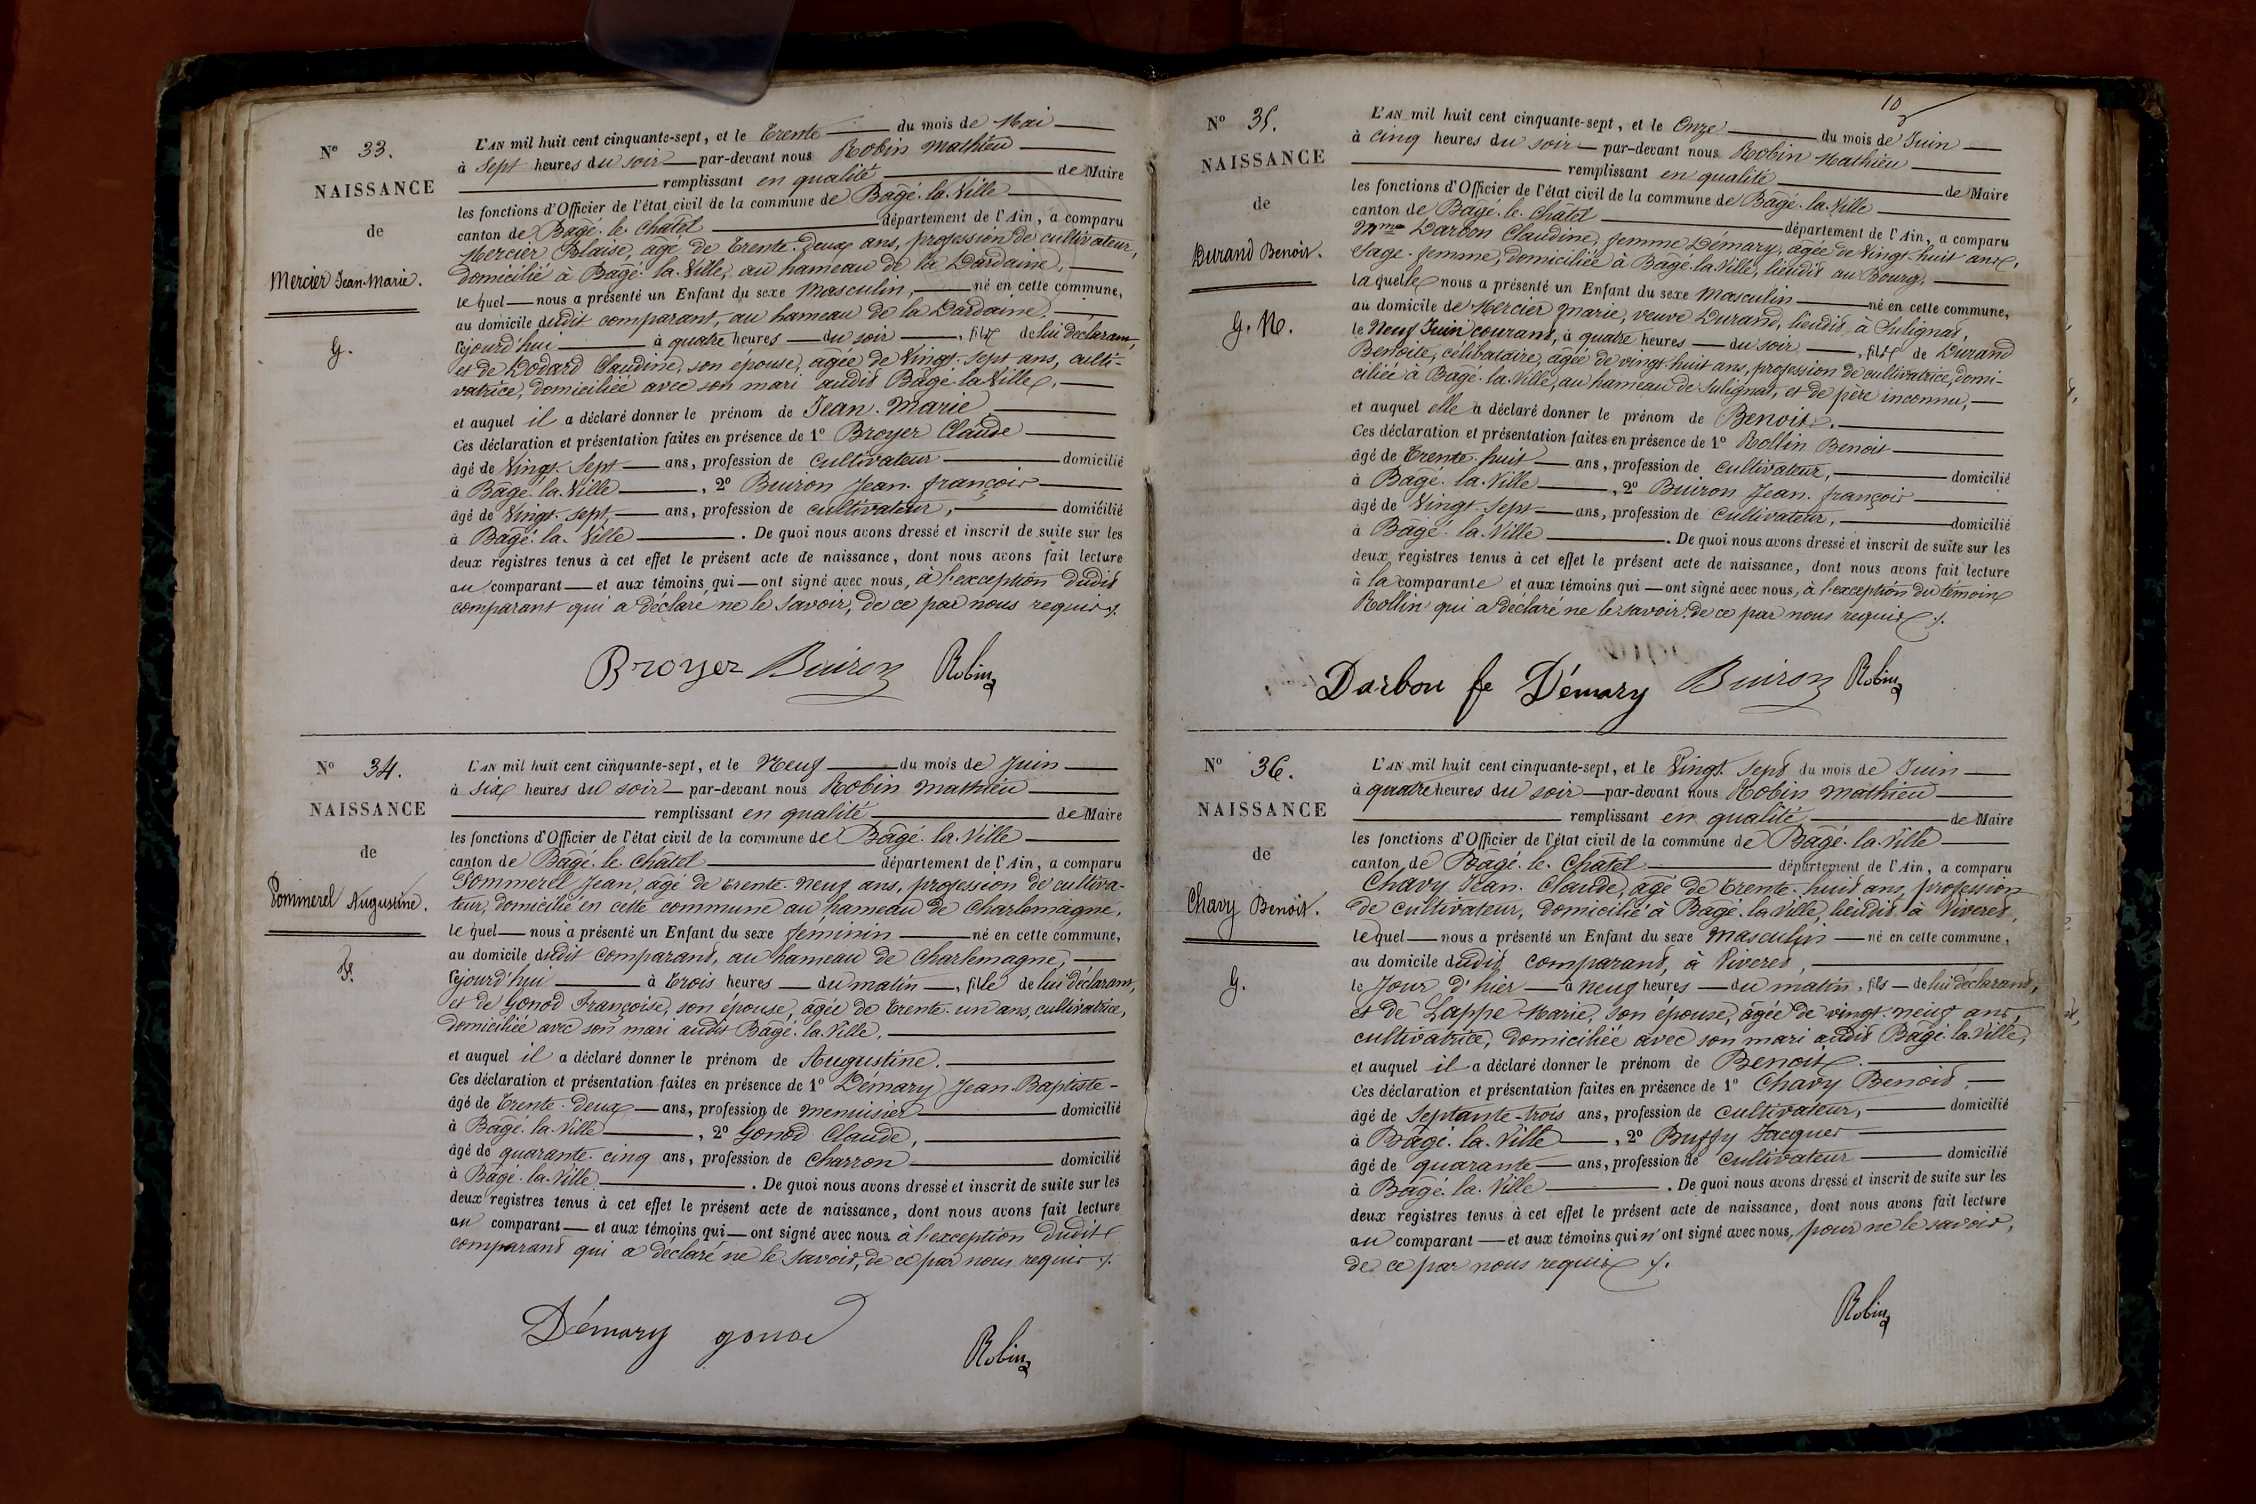 N° 33.
NAISSANCE
de
Mercier Jean-Marie.
G.
L'AN mil huit cent cinquante-sept, et le Trente du mois de Mai
à Sept heures du soir par-devant nous Robin Mathieu
remplissant en qualité de Maire
les fonctions d'Officier de l'état civil de la commune de Bâgé-la-Ville
canton de Bâgé-le-Châtel département de l'Ain, a comparu
Mercier Blaise, âgé de trente-deux ans, profession de cultivateur,
domicilié à Bâgé-la-Ville, au hameau de la Dardaine,
lequel nous a présenté un Enfant du sexe Masculin, né en cette commune,
au domicile dudit comparant, au hameau de la Dardaine.
cejourd'hui à quatre heures du soir, fils de lui déclarant,
et de Dodard Claudine, son épouse, âgée de Vingt-sept ans, culti-
vatrice, domiciliée avec son mari audit Bâgé-la-Ville,
et auquel il a déclaré donner le prénom de Jean-Marie
Ces déclaration et présentation faites en présence de 1° Broyer Claude
âgé de Vingt-Sept ans, profession de cultivateur domicilié
à Bâgé-la-Ville, 2° Buiron Jean-françois
âgé de Vingt-sept ans, profession de cultivateur, domicilié
à Bâgé-la-Ville. De quoi nous avons dressé et inscrit de suite sur les
deux registres tenus à cet effet le présent acte de naissance, dont nous avons fait lecture
au comparant et aux témoins qui ont signé avec nous, à l'exception dudit
comparant qui a déclaré ne le savoir, de ce par nous requis ./.
Broyer Buiron Robin
N° 34.
NAISSANCE
de
Pommerel Augustine.
F.
L'AN mil huit cent cinquante-sept, et le Neuf du mois de Juin
à Six heures du soir par-devant nous Robin Mathieu
remplissant en qualité de Maire
les fonctions d'Officier de l'état civil de la commune de Bâgé-la-Ville
canton de Bâgé-le-Châtel département de l'Ain, a comparu
Pommerel Jean, âgé de trente-neuf ans, profession de cultiva-
teur, domicilié en cette commune au hameau de Charlemagne,
lequel nous a présenté un Enfant du sexe féminin né en cette commune,
au domicile dudit comparant, au hameau de Charlemagne,
cejourd'hui à trois heures du matin, fille de lui déclarant,
et de Gonod Françoise, son épouse, âgée de trente-un ans, cultivatrice,
domiciliée avec son mari audit Bâgé-la-Ville,
et auquel il a déclaré donner le prénom de Augustine.
Ces déclaration et présentation faites en présence de 1° Démary Jean-Baptiste
âgé de trente-deux ans, profession de menuisier domicilié
à Bâgé-la-Ville, 2° Gonod Claude,
âgé de quarante-cinq ans, profession de charron domicilié
à Bâgé-la-Ville. De quoi nous avons dressé et inscrit de suite sur les
deux registres tenus à cet effet le présent acte de naissance, dont nous avons fait lecture
au comparant et aux témoins qui ont signé avec nous à l'exception dudit
comparant qui a declaré ne le savoir, de ce par nous requis ./.
Démary gonod
Robin
10
N° 35.
NAISSANCE
de
Durand Benoit.
G. N.
L'AN mil huit cent cinquante-sept, et le Onze du mois de Juin
à cinq heures du soir par-devant nous Robin Mathieu
remplissant en qualité de Maire
les fonctions d'Officier de l'état civil de la commune de Bâgé-la-Ville
canton de Bâgé-le-Châtel département de l'Ain, a comparu
Mme Darbon Claudine, femme Démary, âgée de Vingt-huit ans,
Sage-femme, domiciliée à Bâgé-la-Ville, lieudit au Bourg,
laquelle nous a présenté un Enfant du sexe Masculin né en cette commune,
au domicile de Mercier Marie, veuve Durand, lieudit à Sulignat,
le Neuf Juin courant, à quatre heures du soir, fils de Durand
Benoite, célibataire, âgée de vingt-huit ans, profession de cultivatrice, domi-
ciliée à Bagé-la-Ville, au hameau de Sulignat, et de père inconnu,
et auquel elle a déclaré donner le prénom de Benoit.
Ces déclaration et présentation faites en présence de 1° Rollin Benoit
âgé de trente-huit ans, profession de cultivateur, domicilié
à Bâgé-la-Ville, 2° Buiron Jean-françois
âgé de Vingt-Sept ans, profession de Cultivateur, domicilié
à Bâgé-la-Ville. De quoi nous avons dressé et inscrit de suite sur les
deux registres tenus à cet effet le présent acte de naissance, dont nous avons fait lecture
à la comparante et aux témoins qui ont signé avec nous, à l'exception du témoin
Rollin qui a déclaré ne le savoir de ce par nous requis ./.
Darbon fe Démary Buiron Robin
N° 36.
NAISSANCE
de
Chavy Benoit.
G.
L'AN mil huit cent cinquante-sept, et le Vingt-Sept du mois de Juin
à quatre heures du soir par-devant nous Robin Mathieu
remplissant en qualité de Maire
les fonctions d'Officier de l'état civil de la commune de Bâgé-la-Ville
canton de Bâgé-le-Châtel département de l'Ain, a comparu
Chavy Jean-Claude, âgé de trente-huit ans, profession
de cultivateur, domicilié à Bâgé-la-Ville, lieudit à Viveret,
lequel nous a présenté un Enfant du sexe Masculin né en cette commune,
au domicile dudit comparant, à Viveret,
le Jour d'hier à neuf heures du matin, fils de lui déclarant,
et de Lappe Marie, son épouse, âgée de vingt-neuf ans,
cultivatrice, domiciliée avec son mari audit Bâgé-la-Ville,
et auquel il a déclaré donner le prénom de Benoit.
Ces déclaration et présentation faites en présence de 1° Chavy Benoit,
âgé de Septante-trois ans, profession de cultivateur, domicilié
à Bâgé-la-Ville, 2° Buffy Jacques
âgé de quarante ans, profession de cultivateur domicilié
à Bâgé-la-Ville. De quoi nous avons dressé et inscrit de suite sur les
deux registres tenus à cet effet le présent acte de naissance, dont nous avons fait lecture
au comparant et aux témoins qui n'ont signé avec nous, pour ne le savoir,
de ce par nous requis ./.
Robin